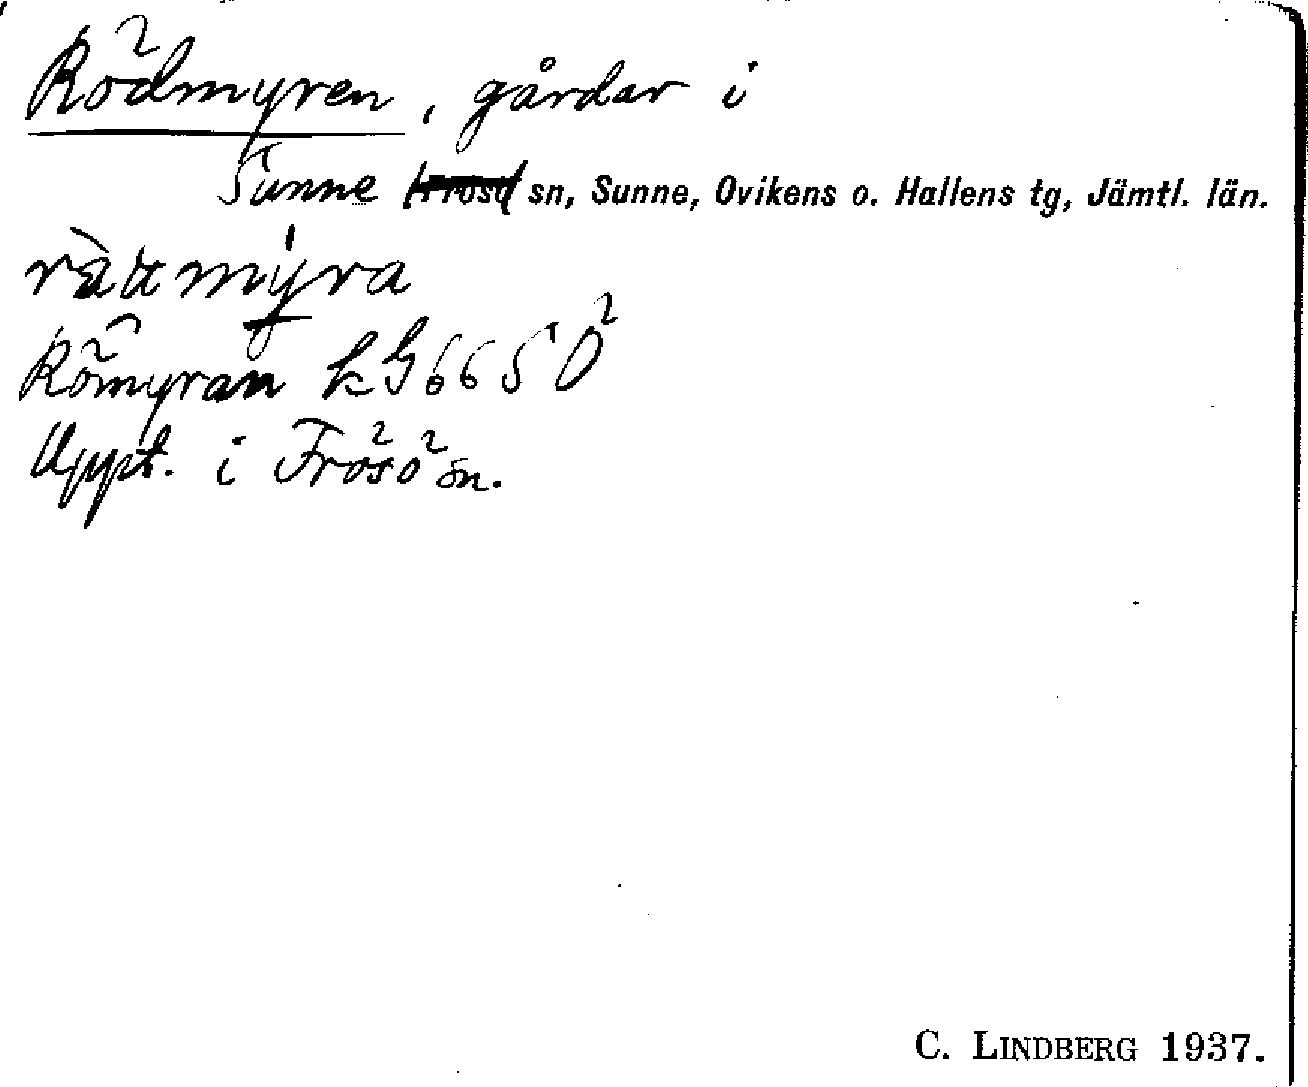 Rödmyren, gårdar i
Sunne Frösö sn, Sunne, Ovikens o. Hallens tg, Jämtl. län.
Römyran LG 6650
Uppt. i Frösö sn.
C. LINDBERG 1937.